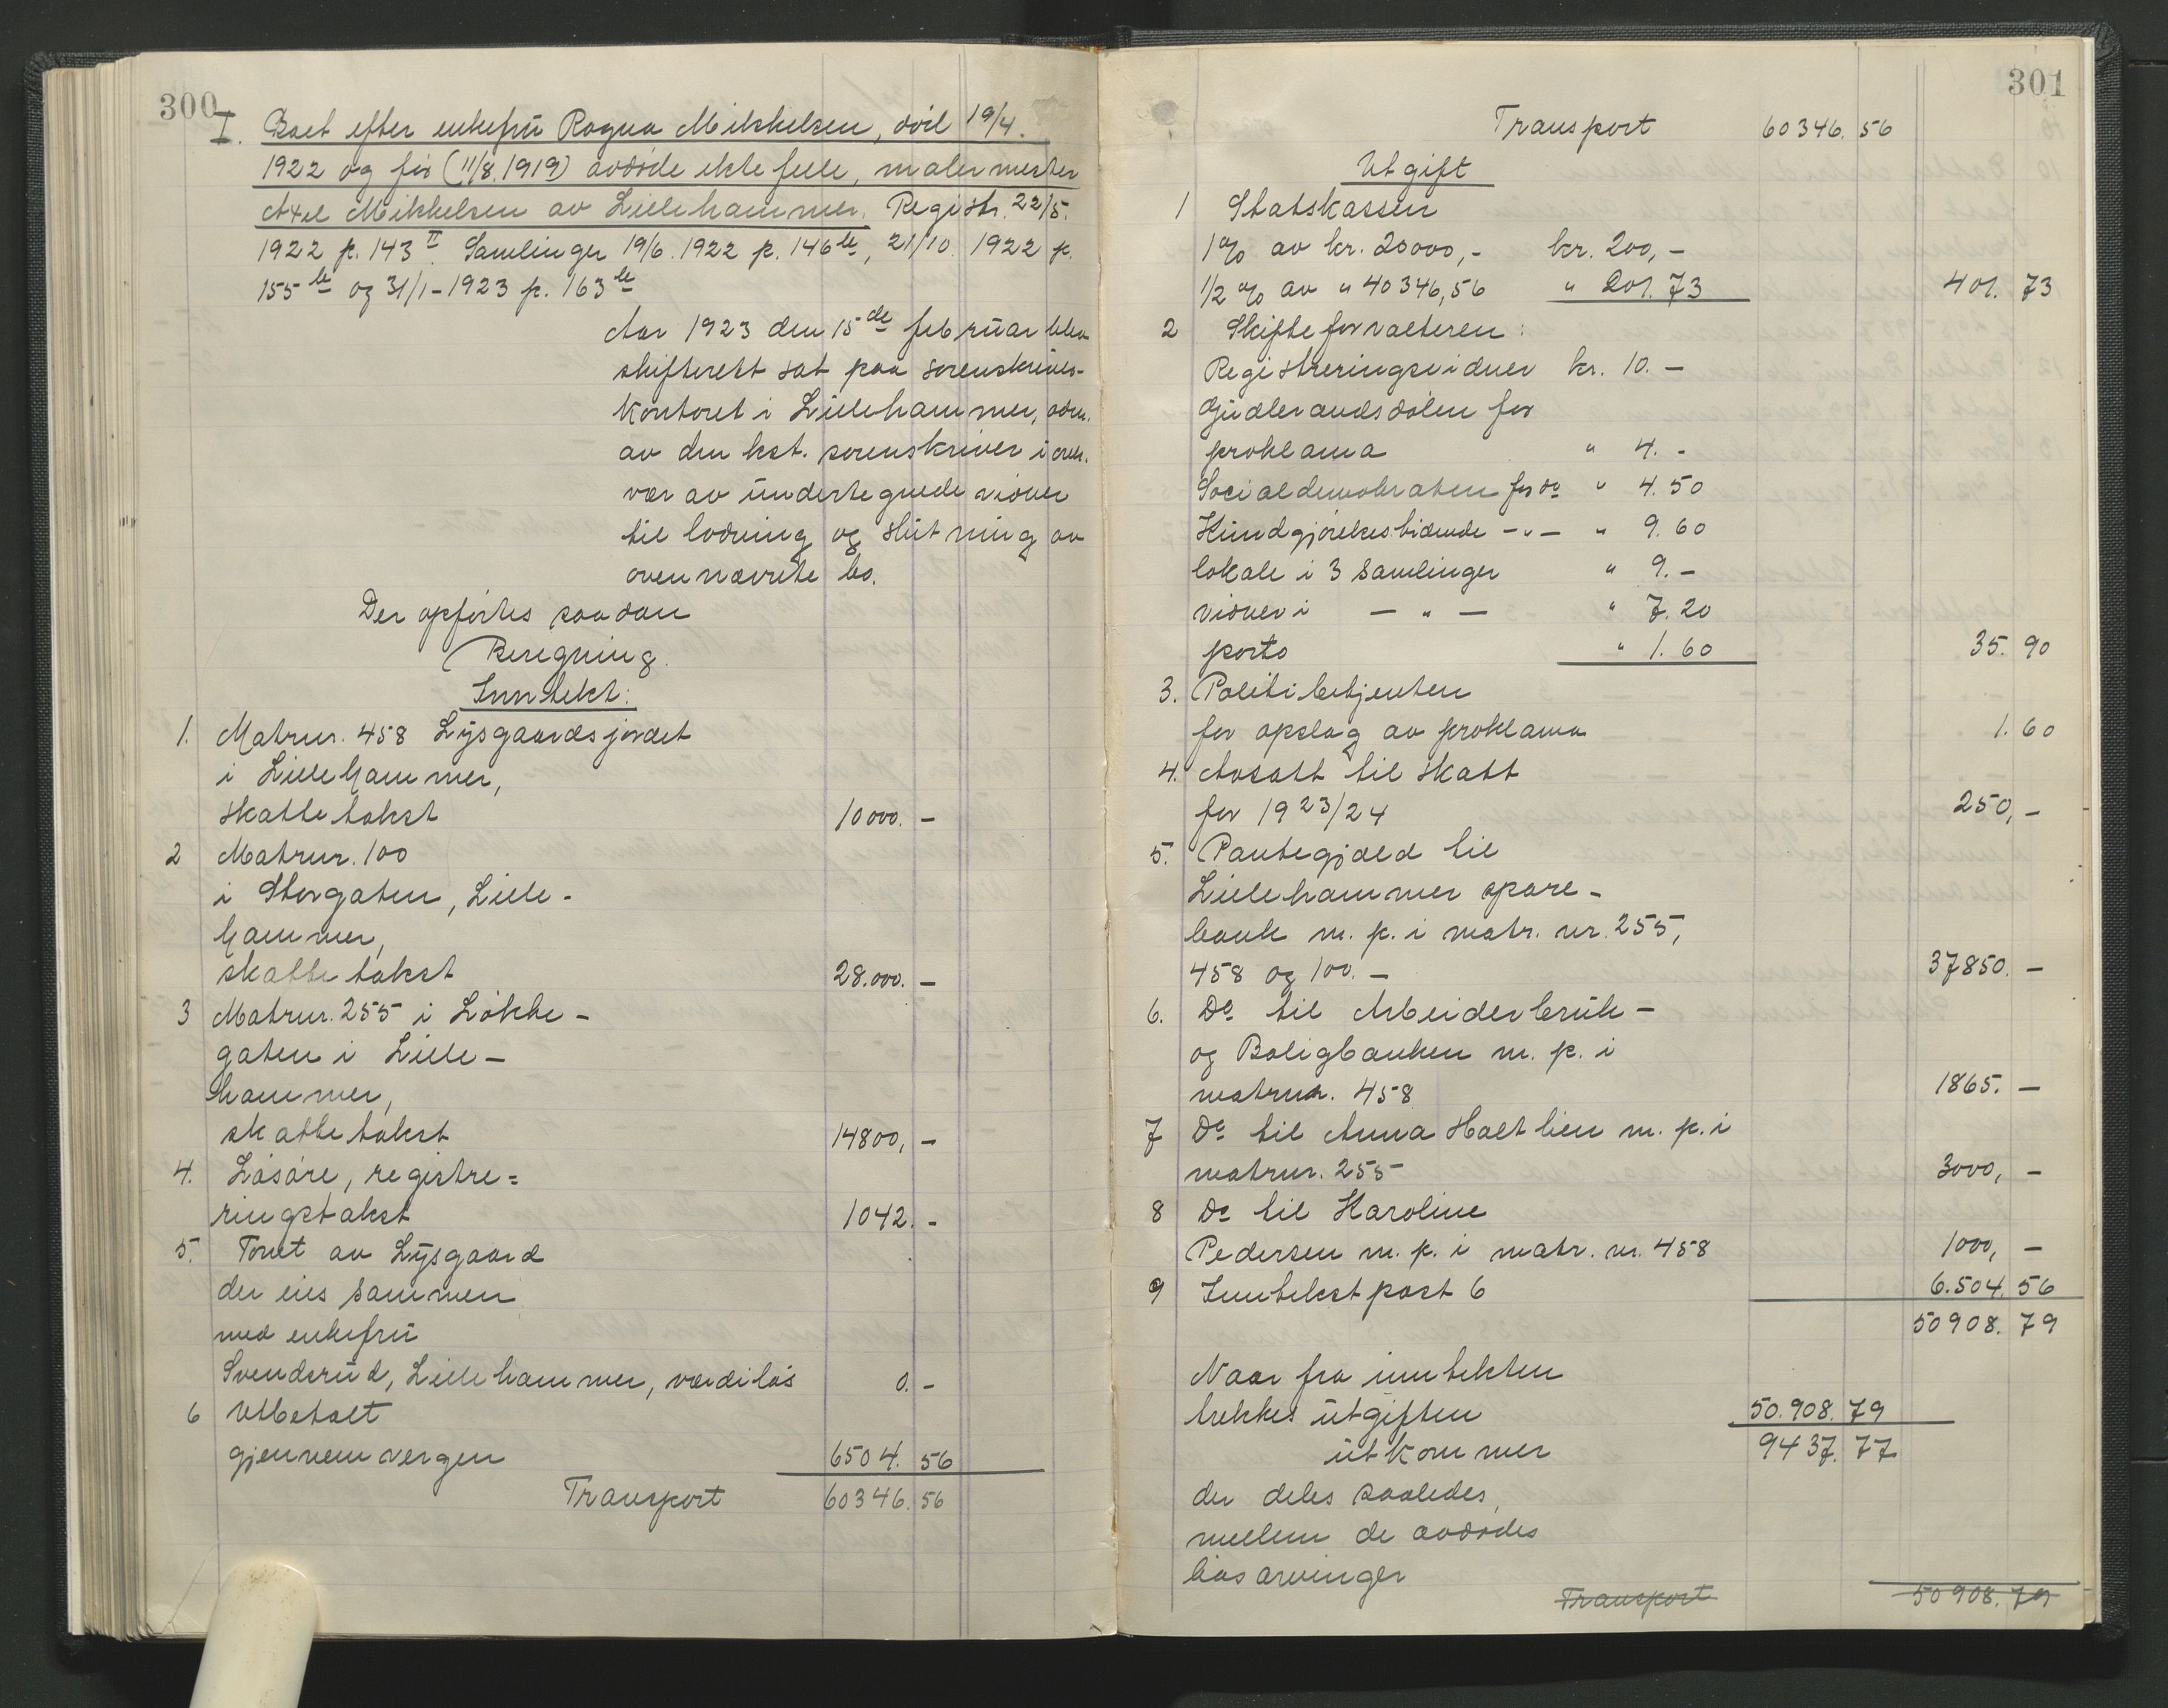 300
I. Boet efter enkefru Ragna Mikkelsen, död 19/4.
1922 og før (11/8. 1919) avdøde ektefelle, malermester
Axel Mikkelsen av Lillehammer. Registr. 22/5.
1922 p. 143 II. Samlinger 19/6. 1922 p. 146 te, 21/10. 1922 p.
155 te og 31/1-1923 p. 163 te
Aar 1923 den 15de februar blev
skifterett sat paa sorenskriver-
kontoret i Lillehammer, adm.
av den kst. sorenskriver i over-
vær av undertegnede vidner
til lodning og slutning av
ovennævnte bo.
Der opførtes saadan
Beregning.
Inntekt:
1. Matrnr. 458 Lysgaardsjordet
i Lillehammer,
skattetakst 10000. -
2 Matrnr. 100
i Storgaten, Lille-
hammer,
skattetakst 28.000. -
3 Matrnr. 255 i Løkke-
gaten i Lille-
hammer,
skattetakst 14800, -
4. Løsøre, registre=
ringstakst 1042. -
5. Tomt av Lysgaard
der eies sammen
med enkefru
Svendsrud, Lillehammer, værdiløs 0. -
6 Utbetalt
gjennem vergen 6504. 56
Transport 60346. 56
301
Transport 60346. 56
Utgift
1 Statskassen
1 % av kr. 20000,- kr. 200,-
1/2 % av " 40346,56 " 201. 73 401. 73
2 Skifteforvalteren:
Registreringsvidner kr. 10. -
Gudbrandsdølen for
proklama " 4. -
Socialdemokraten for do " 4. 50
Kundgjørelsestidende -"- " 9. 60
lokale i 3 samlinger " 9. -
vidner i - " - " 7. 20
porto " 1. 60 35. 90
3. Politibetjenten
for opslag av proklama 1. 60
4. Avsatt til skatt
for 1923/24 250, -
5. Pantegjæld til
Lillehammer spare-
bank m. p. i matr. nr. 255,
458 og 100. - 37850. -
6. Do til Arbeiderbruk-
og Boligbanken m. p. i
matrnr. 458 1865. -
7 Do til Anna Holtlien m. p. i
matrnr. 255 3000, -
8 Do til Karoline
Pedersen m. p. i matr. nr. 458 1000, -
9 Inntektspost 6 6.504. 56
50908. 79
Naar fra inntekten
trekkes utgiften 50.908. 79
utkommer 9437. 77
der deles saaledes,
mellem de avdødes
livsarvinger
Transport 50908. 79